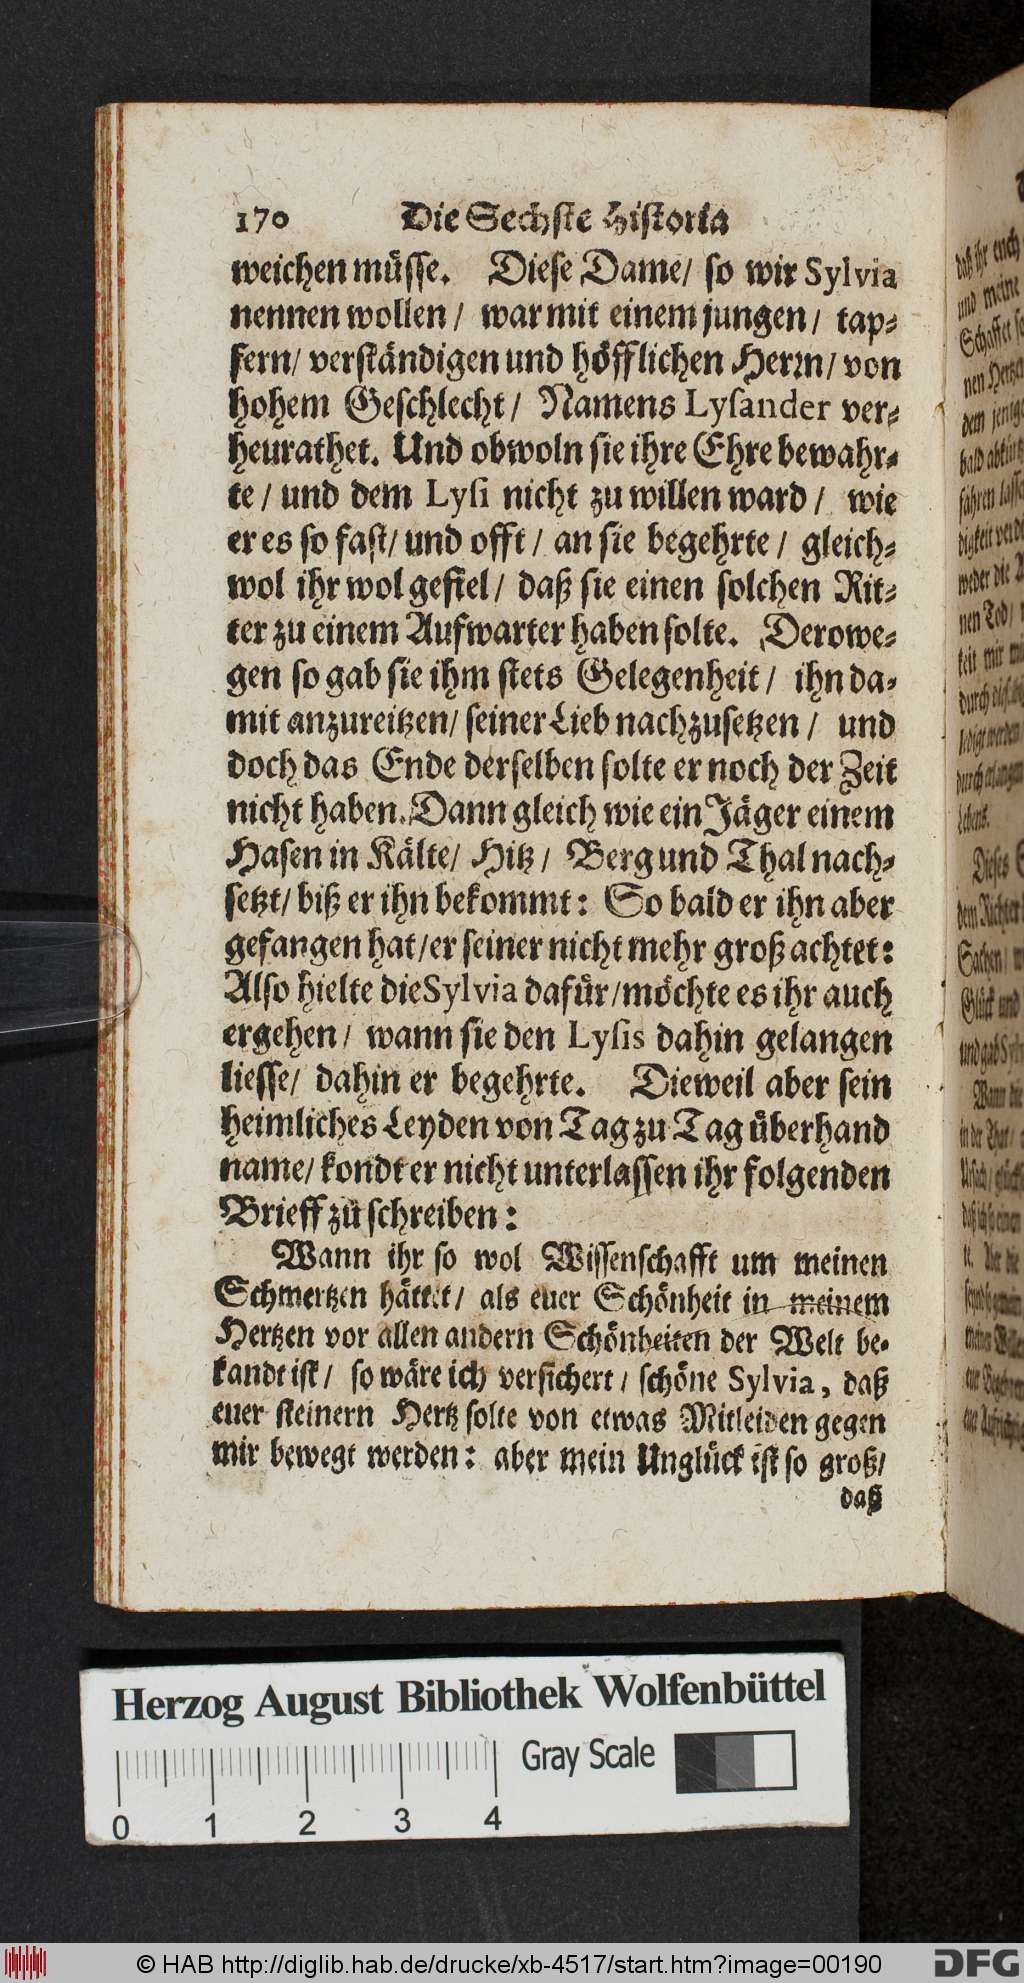 170 Die Sechste Historia
weichen müsse. Diese Dame/ so wir Sylvia
nennen wollen/ war mit einem jungen/ tap-
fern/ verständigen und höfflichen Herrn/ von
hohem Geschlecht/ Namens Lysander ver-
heurathet. Und obwoln sie ihre Ehre bewahr-
te/ und dem Lysi nicht zu willen ward/ wie
er es so fast/ und offt/ an sie begehrte/ gleich-
wol ihr wol gefiel/ daß sie einen solchen Rit-
ter zu einem Aufwarter haben solte. Derowe-
gen so gab sie ihm stets Gelegenheit/ ihn da-
mit anzureitzen/ seiner Lieb nachzusetzen/ und
doch das Ende derselben solte er noch der Zeit
nicht haben. Dann gleich wie ein Jäger einem
Hasen in Kälte/ Hitz/ Berg und Thal nach-
setzt/ biß er ihn bekommt: So bald er ihn aber
gefangen hat/ er seiner nicht mehr groß achtet:
Also hielte die Sylvia dafür/ möchte es ihr auch
ergehen/ wann sie den Lysis dahin gelangen
liesse/ dahin er begehrte. Dieweil aber sein
heimliches Leyden von Tag zu Tag überhand
name/ kondt er nicht unterlassen ihr folgenden
Brieff zu schreiben:
Wann ihr so wol Wissenschafft um meinen
Schmertzen hättet/ als euer Schönheit in meinem
Hertzen vor allen andern Schönheiten der Welt be-
kandt ist/ so wäre ich versichert/ schöne Sylvia, daß
euer steinern Hertz solte von etwas Mitleiden gegen
mir bewegt werden: aber mein Unglück ist so groß/
daß
daß ihr euch
und meine
nen Hertzen
dem jenige
nen Tod/
keit mir
Lebens.
Dieses
dem Richter
Sachen/
Glück und
Wann die
in der That/
Herzog August Bibliothek Wolfenbüttel
Gray Scale
0 1 2 3 4
© HAB http://diglib.hab.de/drucke/xb-4517/start.htm?image=00190
DFG